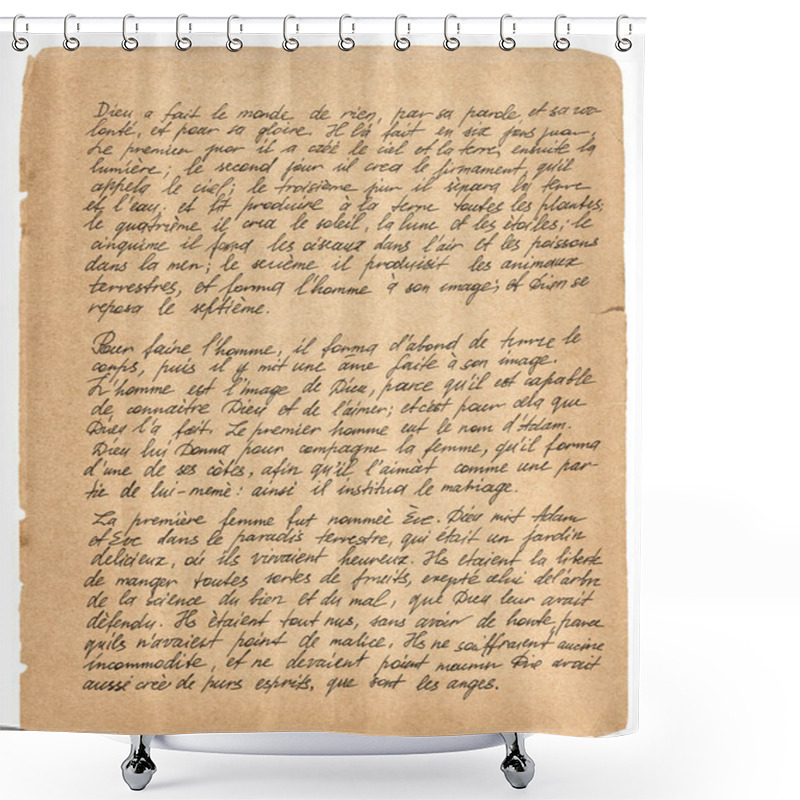 Dieu a fait le monde de rien, par sa parole et sa vo-
lonté, et pour sa gloire. Il l'a fait en six jours
Le premier jour il a créé le ciel et la terre, ensuite la
lumière; le second jour il crea le firmament, qu'il
appela le ciel; le troisième jour il sépara la terre
et l'eau, et fit produire à la terre toutes les plantes;
le quatrième il crea le soleil, la lune et les étoiles; le
cinquime il forma les oiseaux dans l'air et les poissons
dans la mer; le sixième il produisit les animaux
terrestres, et forma l'homme à son image; et Dieu se
reposa le septième.
Pour faire l'homme, il forma d'abord de terre le
corps, puis il y mit une ame faite à son image.
L'homme est l'image de Dieu, parce qu'il est capable
de connaitre Dieu et de l'aimer; et c'est pour cela que
Dieu l'a fait. Le premier homme eut le nom d'Adam.
Dieu lui Donna pour compagne la femme, qu'il forma
d'une de ses còtes, afin qu'il l'aimât comme une par-
tie de lui-memè: ainsi il institua le mariage.
La première femme fut nommèe Ève. Dieu mit Adam
et Eve dans le paradis terrestre, qui était un jardin
delicieux, où ils vivaient heureux. Ils etaient la liberte
de manger toutes sortes de fruits, exepté celui de l'arbre
de la science du bien et du mal, que Dieu leur avait
dèfendu. Ils ètaient tout nus, sans avoir de honte, parce
quils n'avaient point de malice. Ils ne souffraient aucune
incommodite, et ne devaient point mourir Dieu avait
aussi crèe de purs esprits, que sont les anges.